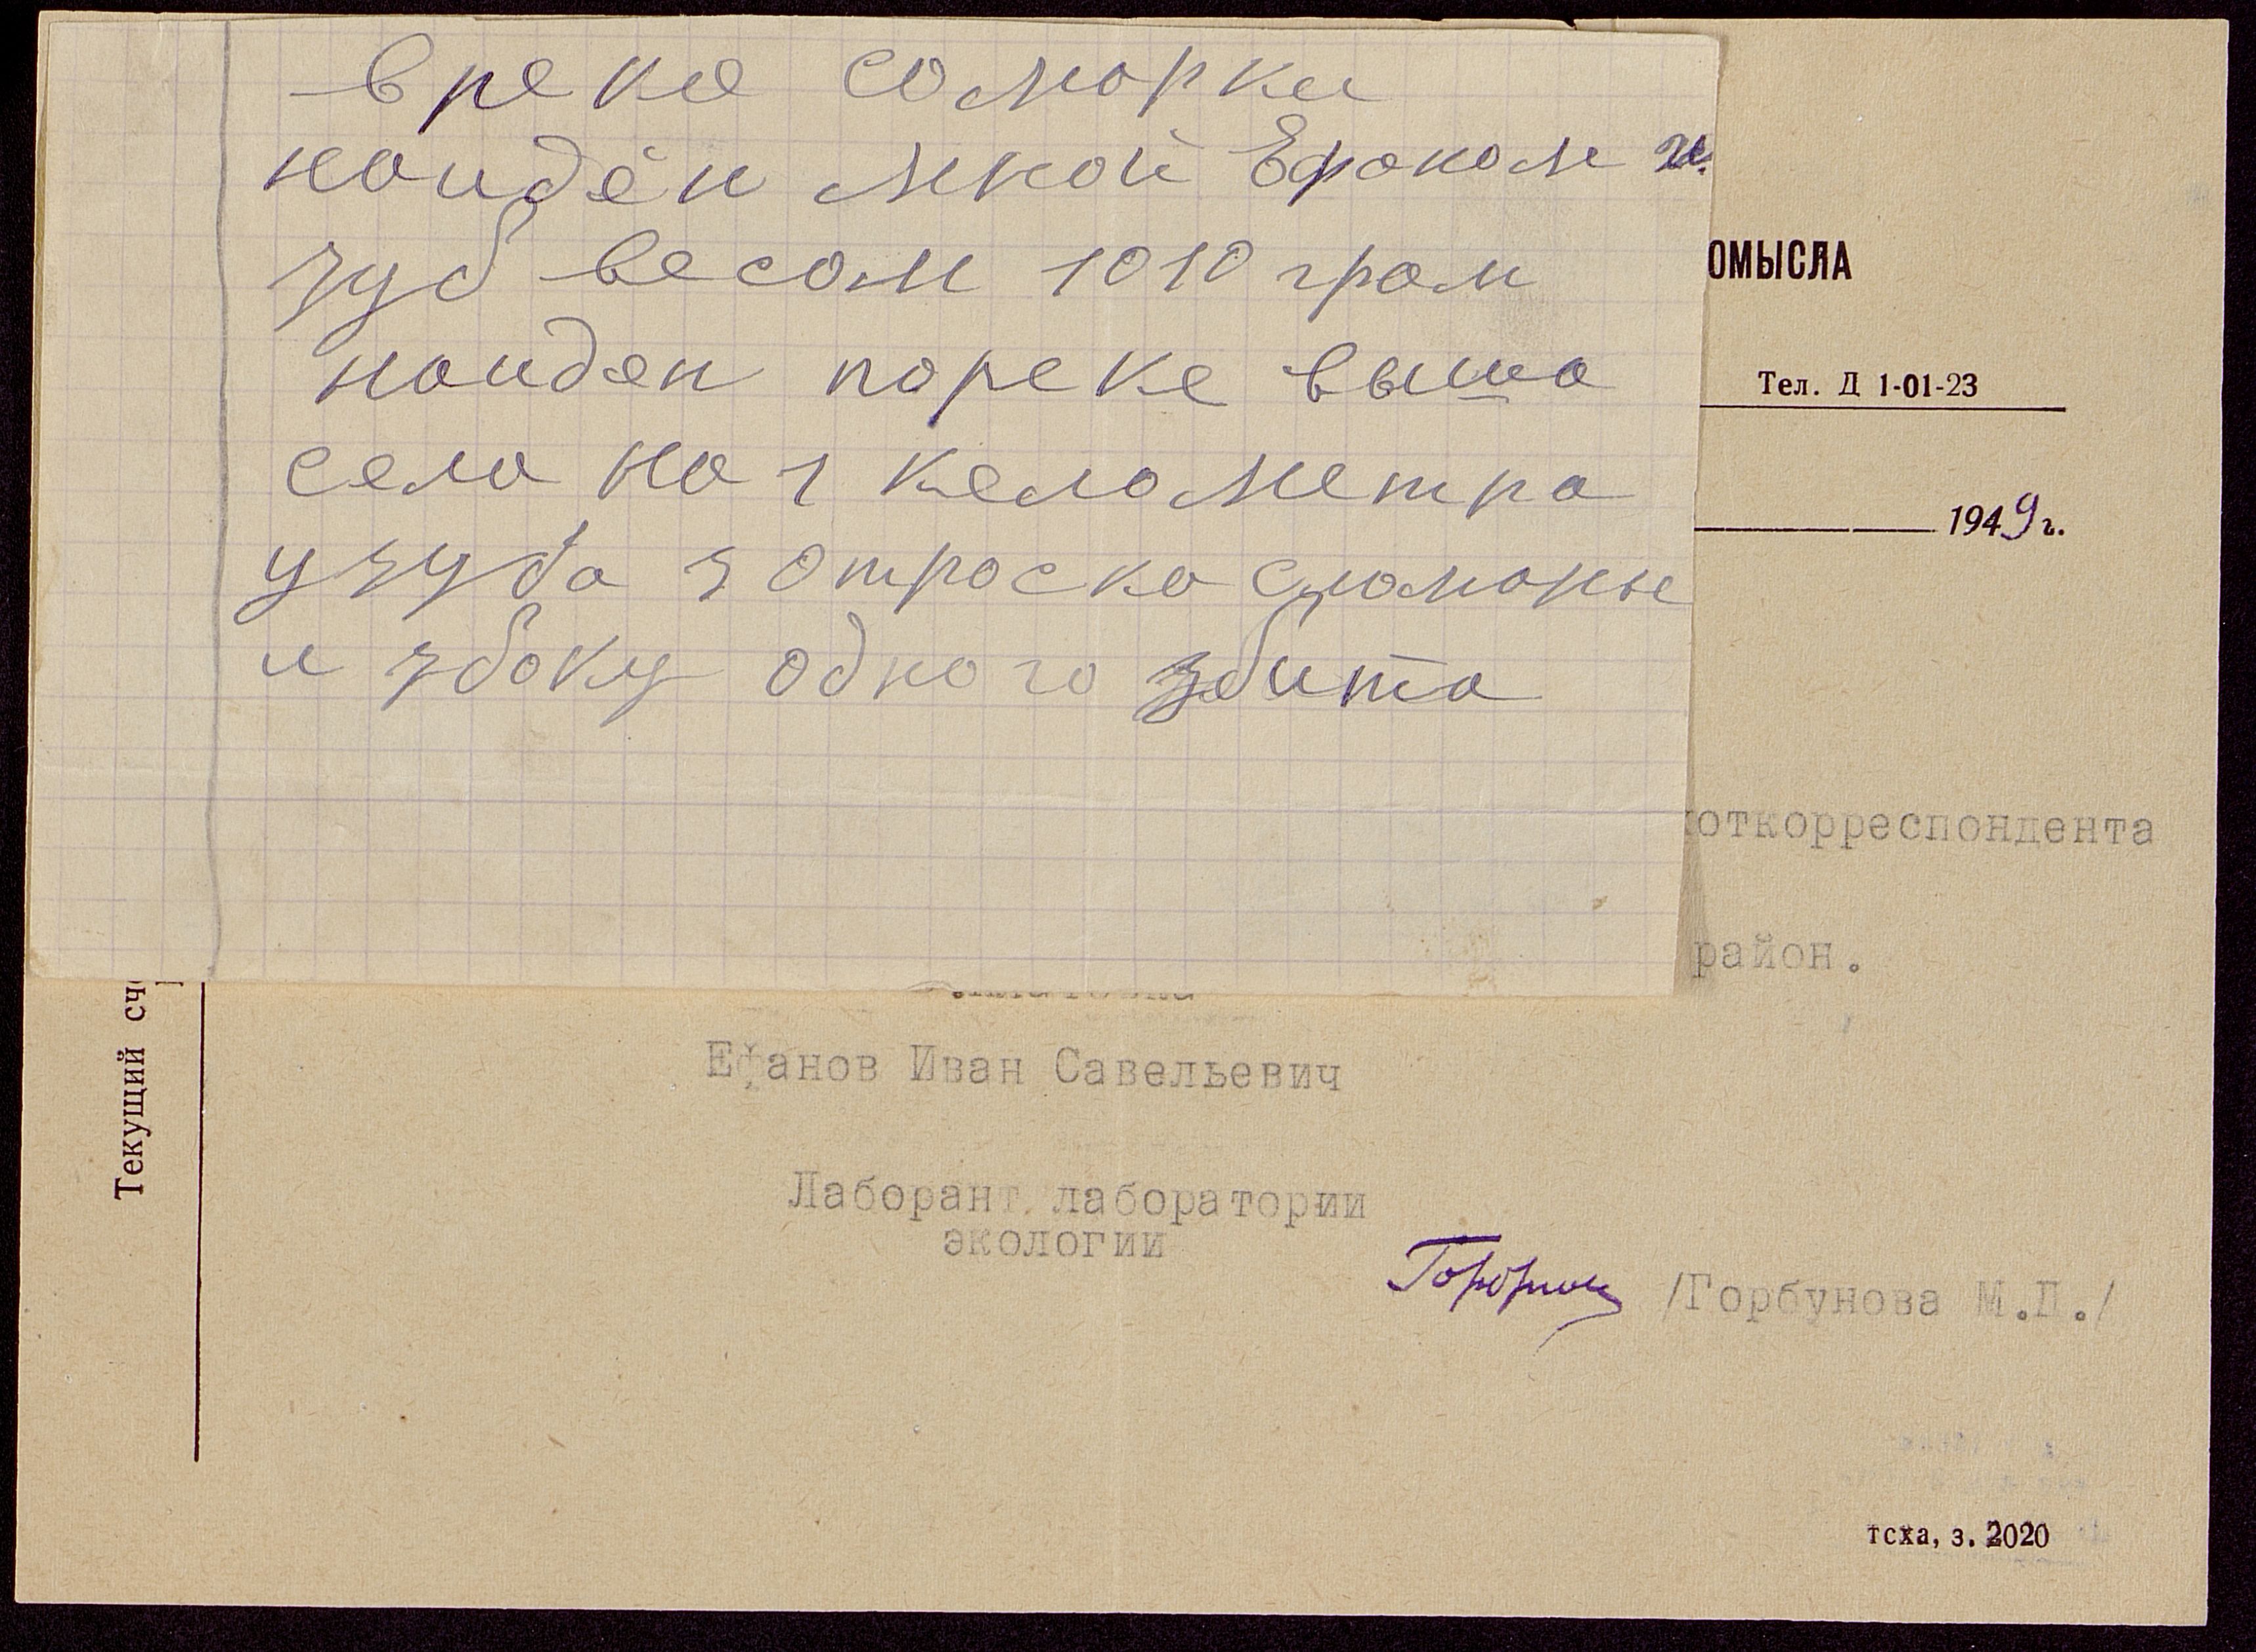 в реке саморки
найдён мной Ефаном и.
зуб весом 1010 грам
найден пореке выша
села на 1 келометра
узуба 3 отроска сломаные
и збоку одного збита
ОМЫСЛА
Тел. Д 1-01-23
1949 г.
откорреспондента
район.
Текущий сч
Ефанов Иван Савельевич
Лаборант лаборатории
экологии
/Горбунова М.П./
тсха, з. 2020